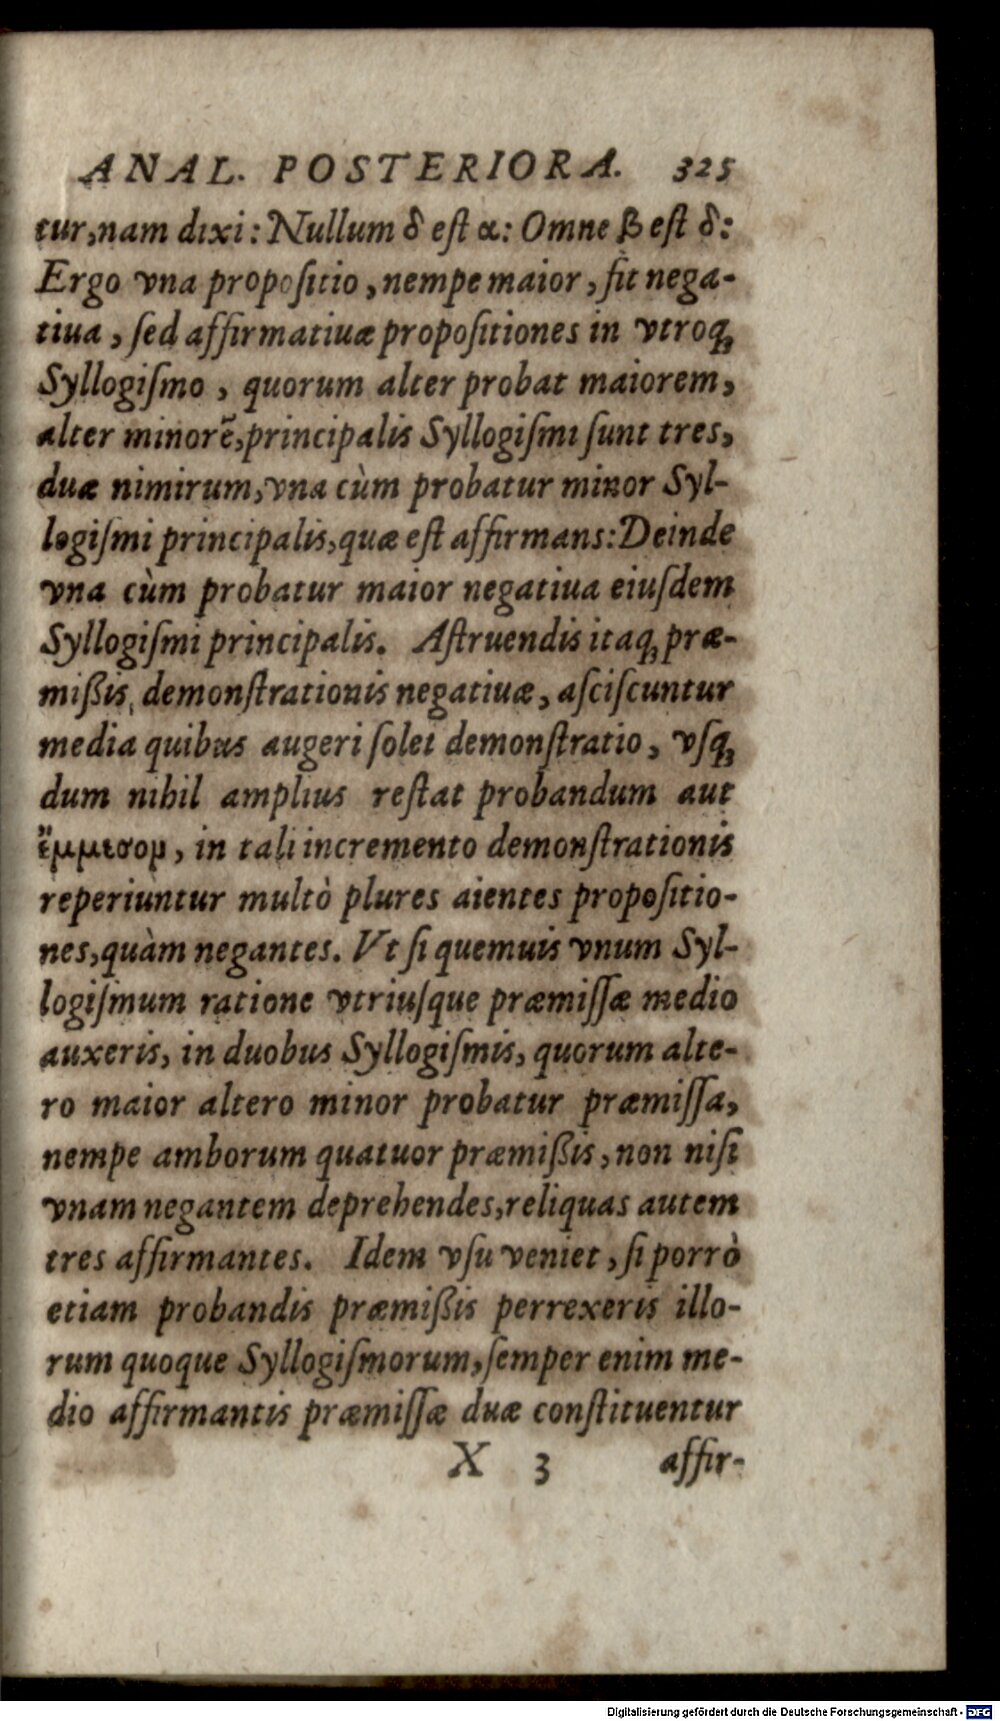 ANAL. POSTERIORA. 325
tur, nam dixi: Nullum δ eſt α: Omne β eſt δ:
Ergo vna propoſitio, nempe maior, fit nega-
tiua, ſed affirmatiuæ propoſitiones in vtroqꝫ
Syllogiſmo, quorum alter probat maiorem,
alter minorẽ, principalis Syllogiſmi ſunt tres,
duæ nimirum, vna cùm probatur minor Syl-
logiſmi principalis, quæ eſt affirmans: Deinde
vna cùm probatur maior negatiua eiuſdem
Syllogiſmi principalis. Aſtruendis itaqꝫ præ-
mißis, demonſtrationis negatiuæ, aſciſcuntur
media quibus augeri ſolet demonſtratio, vſqꝫ
dum nihil amplius reſtat probandum aut
ἔμμεσομ, in tali incremento demonſtrationis
reperiuntur multò plures aientes propoſitio-
nes, quàm negantes. Vt ſi quemuis vnum Syl-
logiſmum ratione vtriuſque præmiſſæ medio
auxeris, in duobus Syllogiſmis, quorum alte-
ro maior altero minor probatur præmiſſa,
nempe amborum quatuor præmißis, non niſi
vnam negantem deprehendes, reliquas autem
tres affirmantes. Idem vſu veniet, ſi porrò
etiam probandis præmißis perrexeris illo-
rum quoque Syllogiſmorum, ſemper enim me-
dio affirmantis præmiſſæ duæ conſtituentur
X 3 affir-
Digitalisierung gefördert durch die Deutsche Forschungsgemeinschaft - DFG